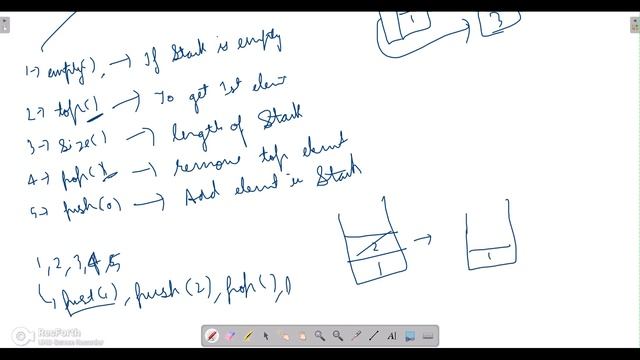 1
3
1-> empty(), -> If Stack is empty
2-> top() -> To get 1st elem
3-> Size() -> length of Stack
4-> pop() -> remove top elemnt
5-> push(o) -> Add elemnt in Stack
2
1
->
1
1, 2, 3, 4, 5
push(1), push(2), pop(),
RecForth
AI